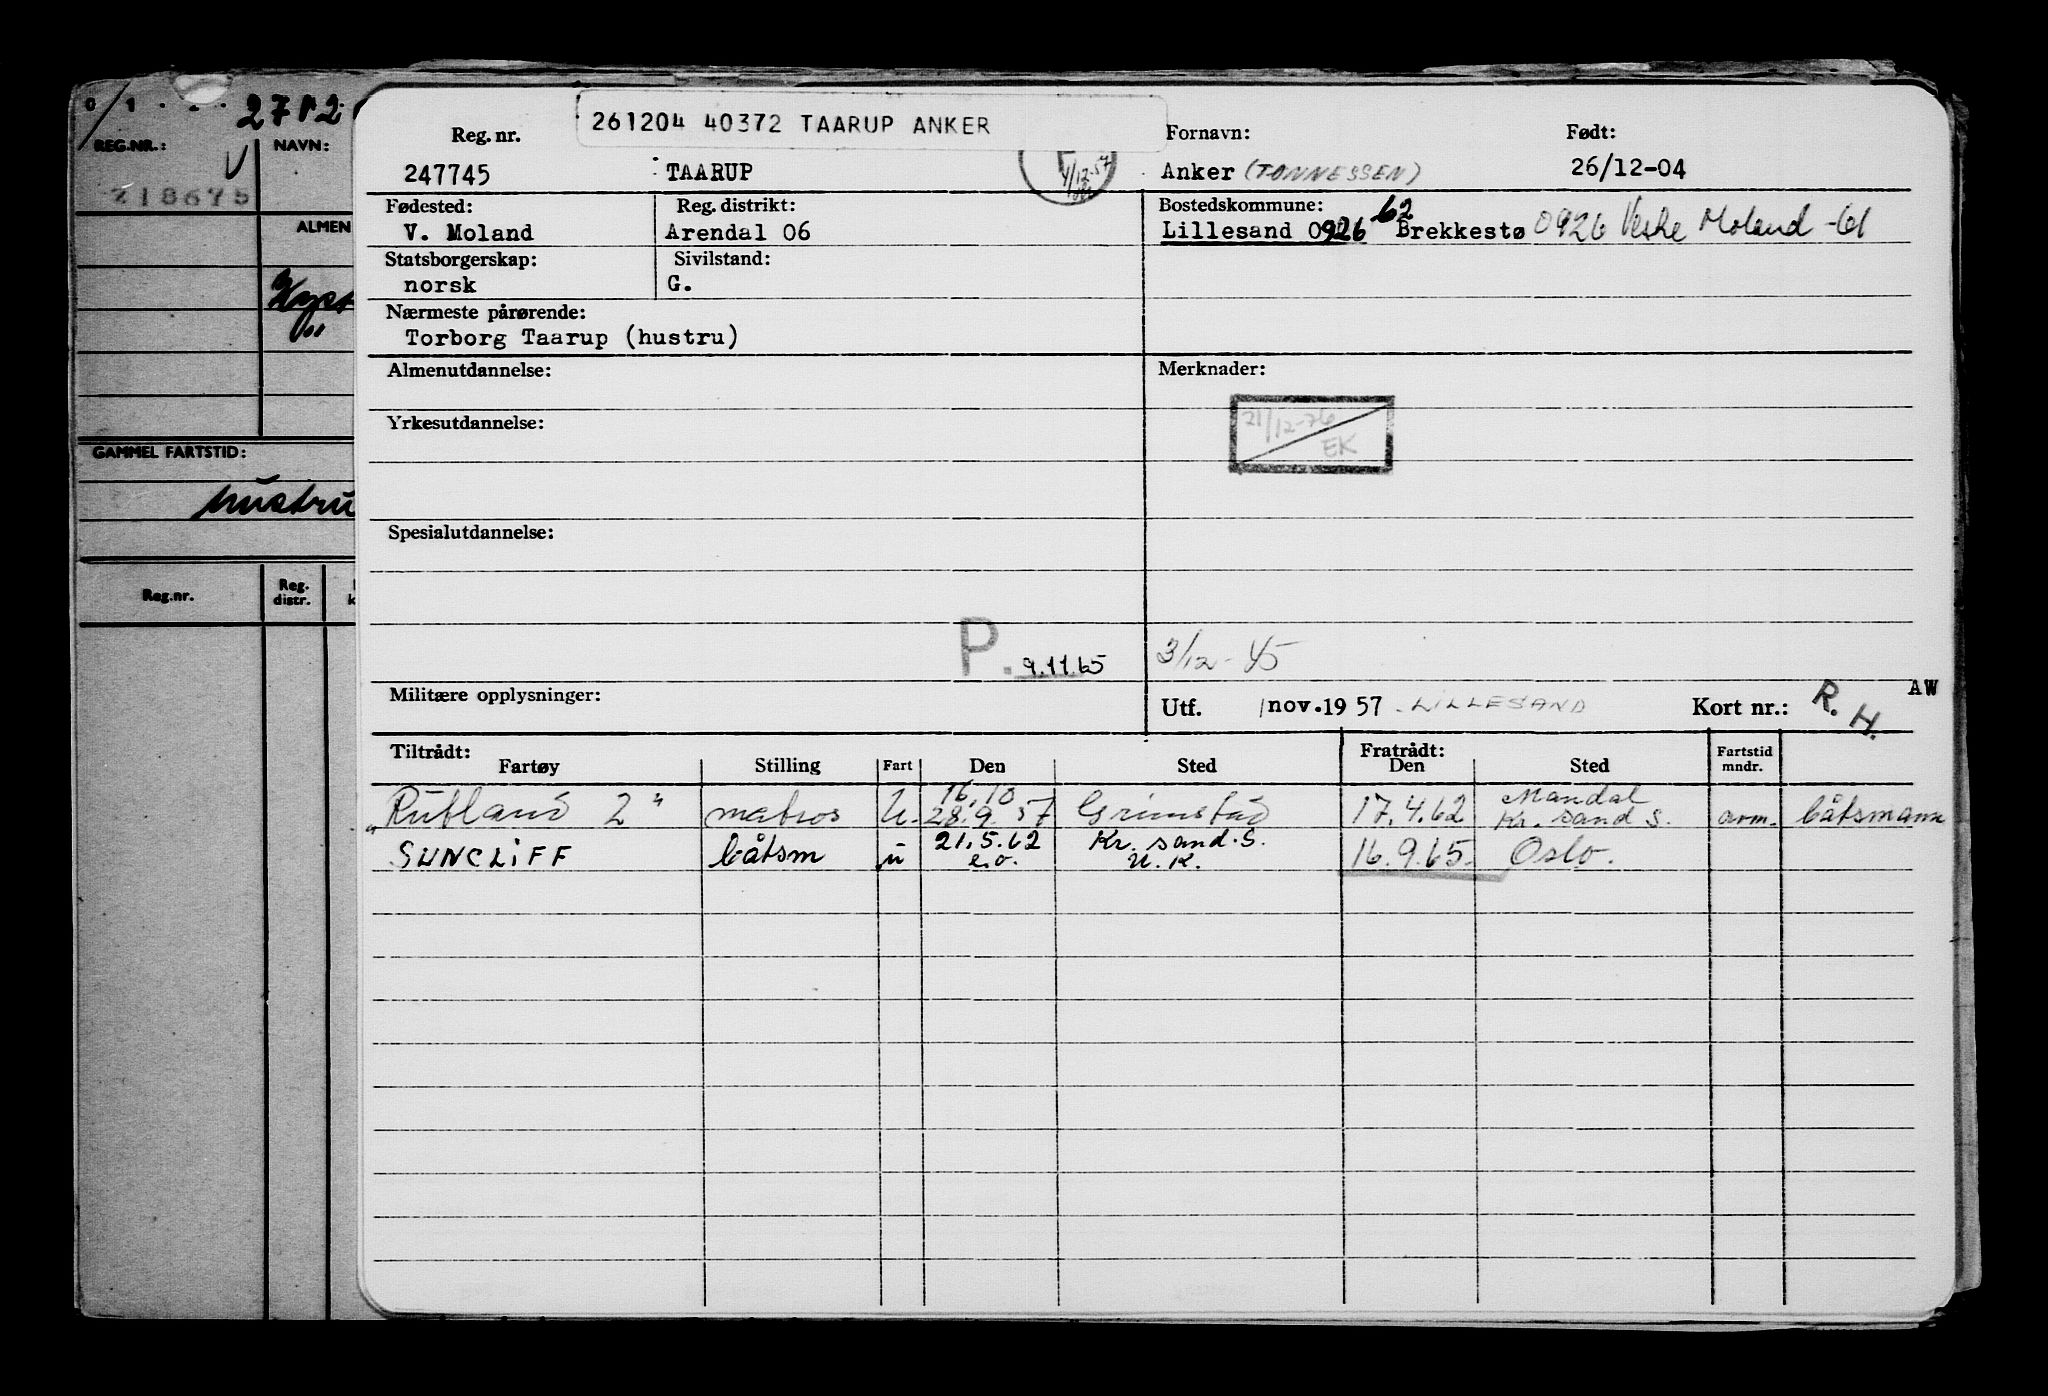 0 1 . . . 2712
REG.NR.: NAVN:
218675
ALMEN
GAMMEL FARTSTID:
hustru
Reg.nr. Reg. distr.
261204 40372 TAARUP ANKER
Reg. nr. Fornavn: Født:
247745 TAARUP Anker (TONNESSEN) 26/12-04
4/12-57
Fødested: Reg. distrikt: Bostedskommune:
V. Moland Arendal 06 Lillesand 0926 62 Brekkestø 0926 Vestre Moland -61
Statsborgerskap: Sivilstand:
norsk G.
Nærmeste pårørende:
Torborg Taarup (hustru)
Almenutdannelse: Merknader:
21/12-76
EK
Yrkesutdannelse:
Spesialutdannelse:
P. 9.11.65 3/12-45
Militære opplysninger: Utf. 1 nov. 1957 LILLESAND Kort nr.: R. H. AW
Tiltrådt: Fratrådt: Fartstid
Fartøy Stilling Fart Den Sted Den Sted mndr.
16.10 Mandal
"Rutland 2" matros U. 28.9.57 Grimstad 17.4.62 Kr. sand S. avm. båtsmann
SUNCLIFF båtsm u 21.5.62 Kr. sand. S. 16.9.65. Oslo.
e.o. U. K.